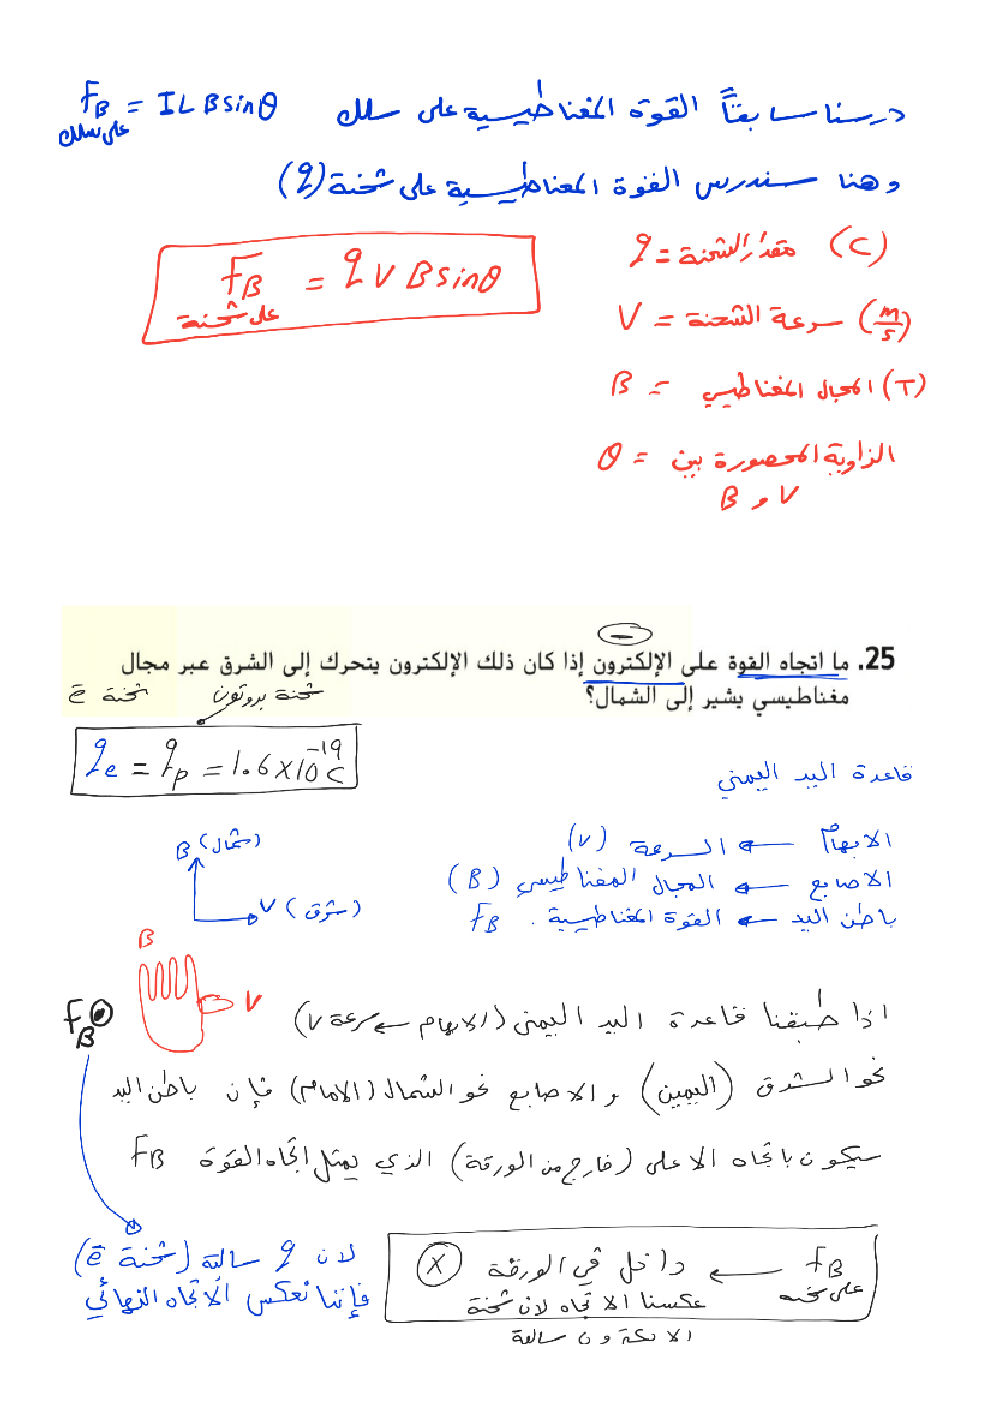 درسنا سابقاً القوة المغناطيسية على سلك F_B = I L B sin θ
على سلك
وهنا سندرس القوة المغناطيسية على شحنة (q)
F_B = q V B sin θ
على شحنة
q = مقدار الشحنة (C)
V = سرعة الشحنة (m/s)
B = المجال المغناطيسي (T)
θ = الزاوية المحصورة بين
V و B
−
25. ما اتجاه القوة على الإلكترون إذا كان ذلك الإلكترون يتحرك إلى الشرق عبر مجال
مغناطيسي يشير إلى الشمال؟
شحنة بروتون شحنة e⁻
q_e = q_p = 1.6×10⁻¹⁹ C
قاعدة اليد اليمنى
الابهام ← السرعة (V)
الاصابع ← المجال المغناطيسي (B)
باطن اليد ← القوة المغناطيسية. F_B
B (شمال)
V (شرق)
B
V
F_B
اذا طبقنا قاعدة اليد اليمنى (الابهام ← سرعة V)
نحو الشرق (اليمين) والاصابع نحو الشمال (الامام) فإن باطن اليد
سيكون باتجاه الاعلى (خارج من الورقة) الذي يمثل اتجاه القوة F_B
لان q سالبة (شحنة e⁻)
فإننا نعكس الاتجاه النهائي
F_B ← داخل في الورقة (X)
على شحنه
عكسنا الاتجاه لان شحنة
الالكترون سالبة